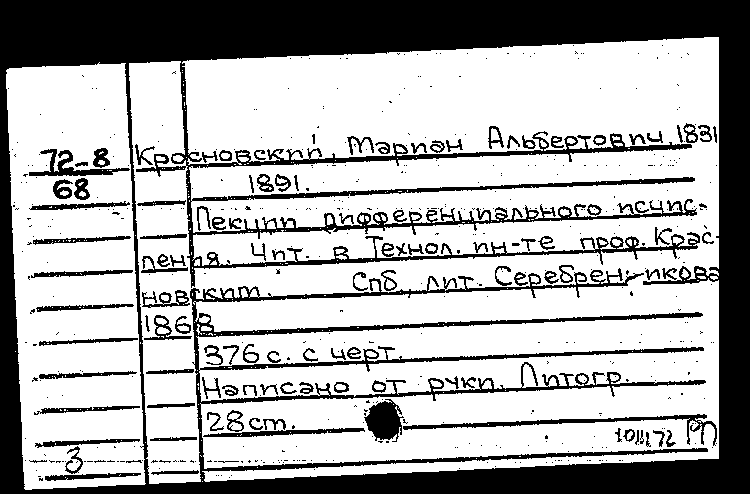 72-8 Красновский, Мариан Альбертович, 1831
68 1891.
Лекции дифференциального исчис-
ления. Чит. в Технол. ин-те проф. Крас-
новским. Спб, лит. Серебрен-никова
1868
376 с. с черт.
Написано от руки. Литогр.
28 cm.
3